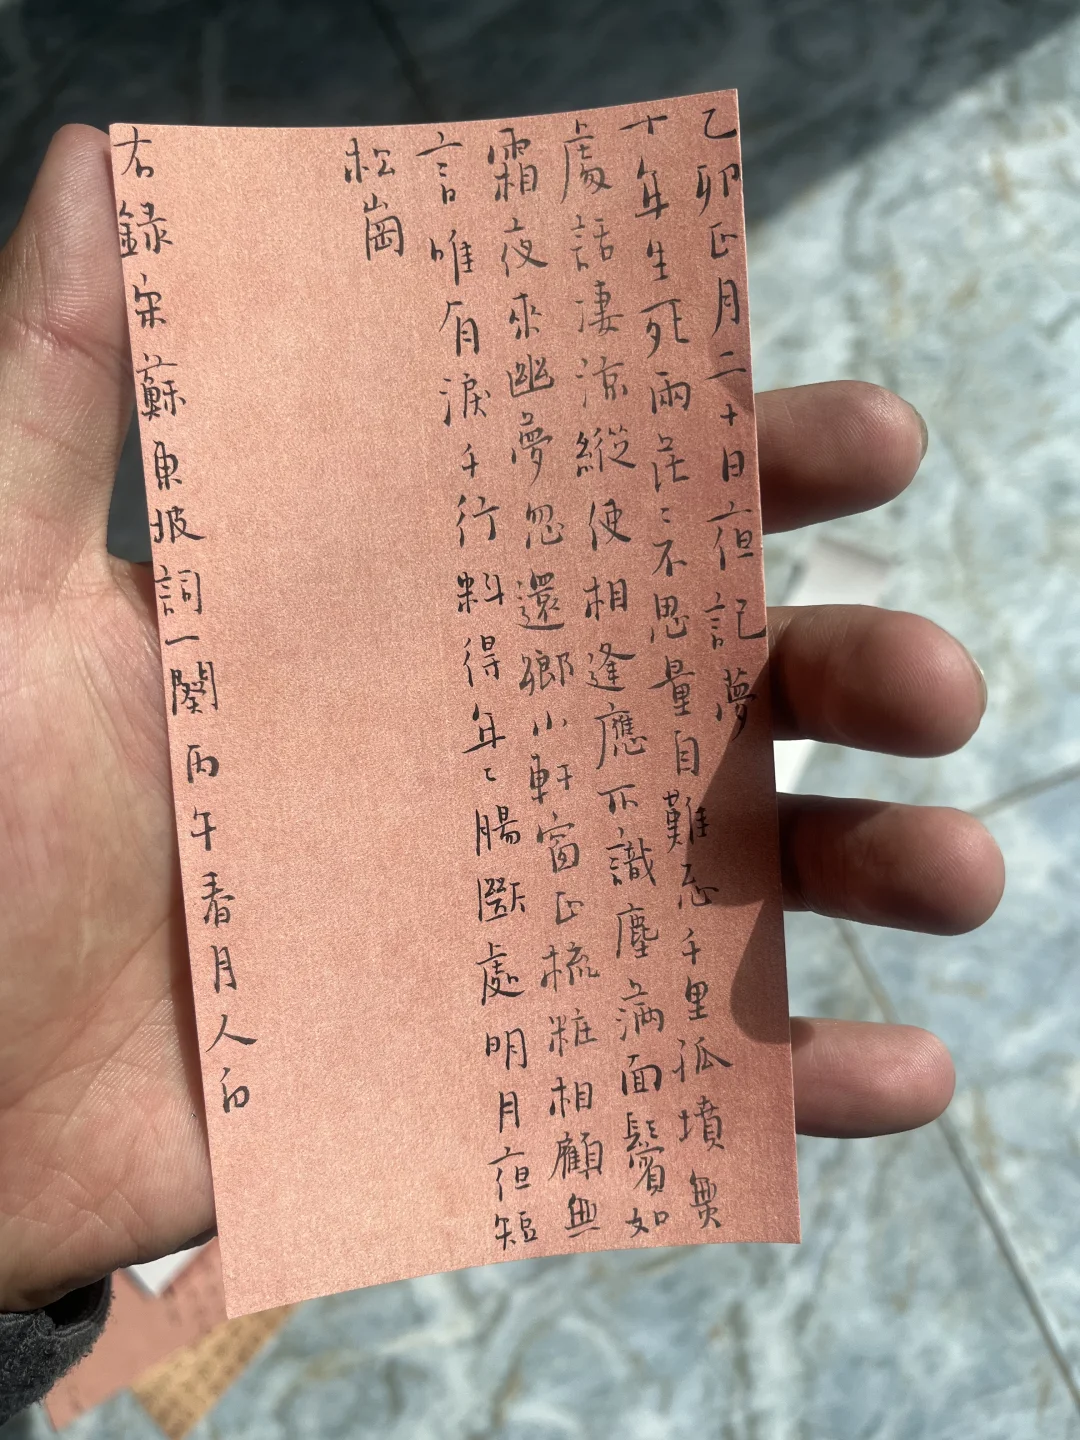 乙卯正月二十日夜記夢
十年生死兩茫〻不思量自難忘千里孤墳無
處話凄涼縱使相逢應不識塵滿面鬢如
霜夜來幽夢忽還鄉小軒窗正梳粧相顧無
言唯有淚千行料得年〻腸斷處明月夜短
松崗
右録宋蘇東坡詞一闋丙午春月人白